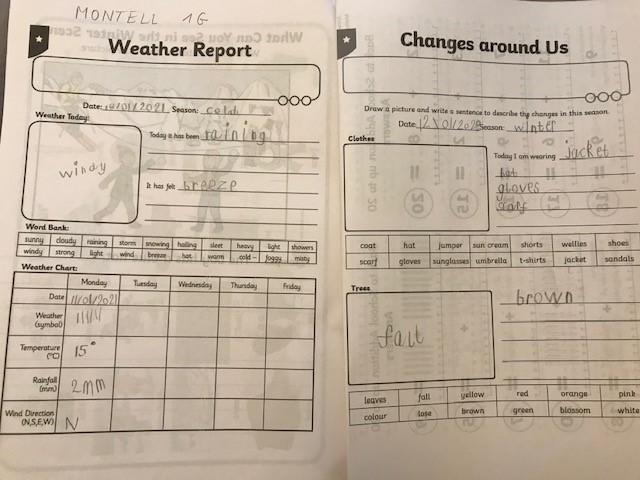 MONTELL 1G
Weather Report
Date: 12/01/2021 Season: cold
Weather Today:
windy
Today it has been raining
It has felt breeze
Word Bank:
sunny cloudy raining storm snowing hailing sleet heavy light showers
windy strong light wind breeze hot warm cold foggy misty
Weather Chart:
Monday Tuesday Wednesday Thursday Friday
Date 11/01/2021
Weather (symbol)
Temperature (°C) 15°
Rainfall (mm) 2mm
Wind Direction (N,S,E,W) N
Changes around Us
Draw a picture and write a sentence to describe the changes in this season.
Date: Season: winter
Clothes
Today I am wearing jacket
hat
gloves
scarf
coat hat jumper sun cream shorts wellies shoes
scarf gloves sunglasses umbrella t-shirts jacket sandals
Trees
fall
brown
leaves fall yellow red orange pink
colour lose brown green blossom white